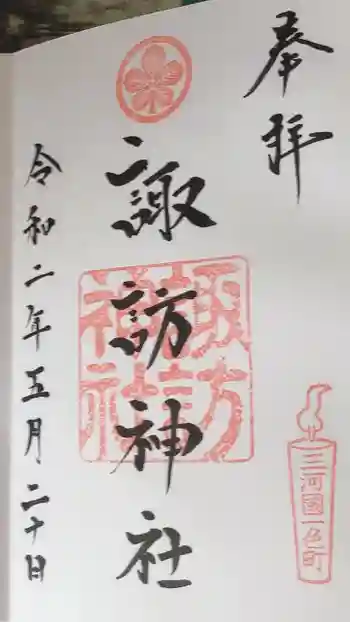 奉拝
諏訪神社
諏訪
神社
三河國一色町
令和二年五月二十日